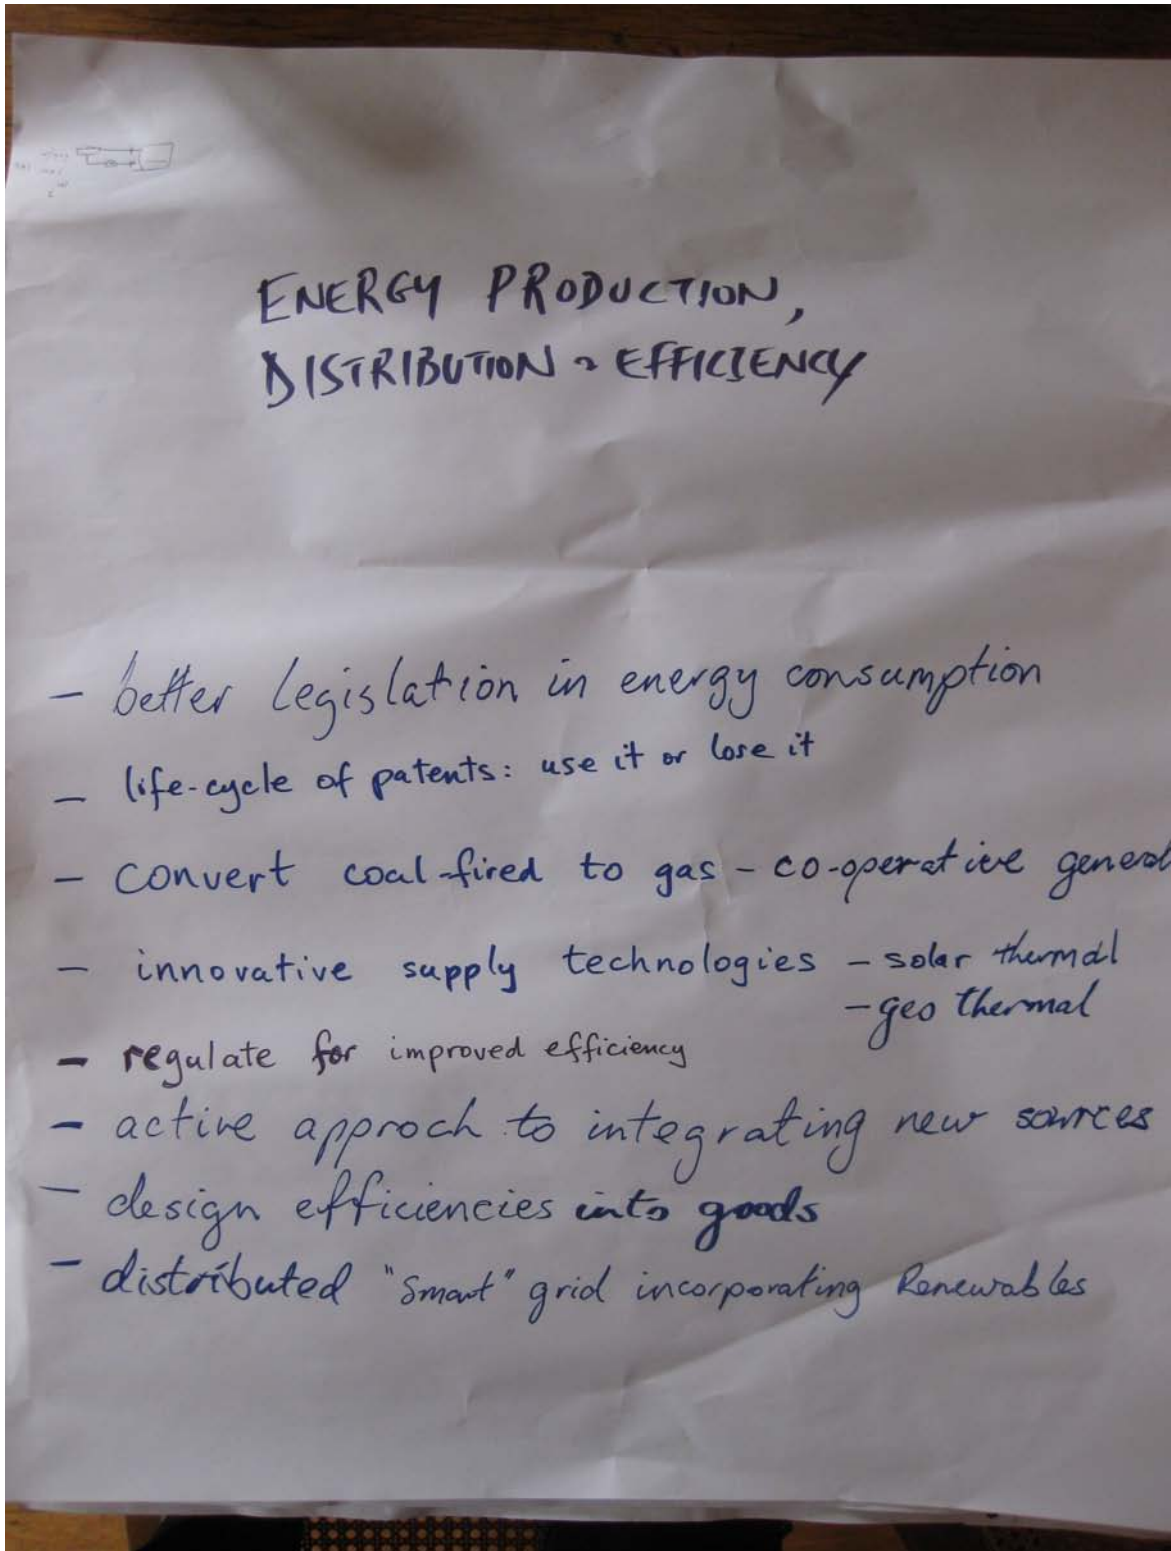 ENERGY PRODUCTION,
DISTRIBUTION & EFFICIENCY
- better legislation in energy consumption
- life-cycle of patents: use it or lose it
- convert coal-fired to gas - co-operative
- innovative supply technologies - solar thermal
- geo thermal
- regulate for improved efficiency
- active approch to integrating new sources
- design efficiencies into goods
- distributed "smart" grid incorporating Renewables